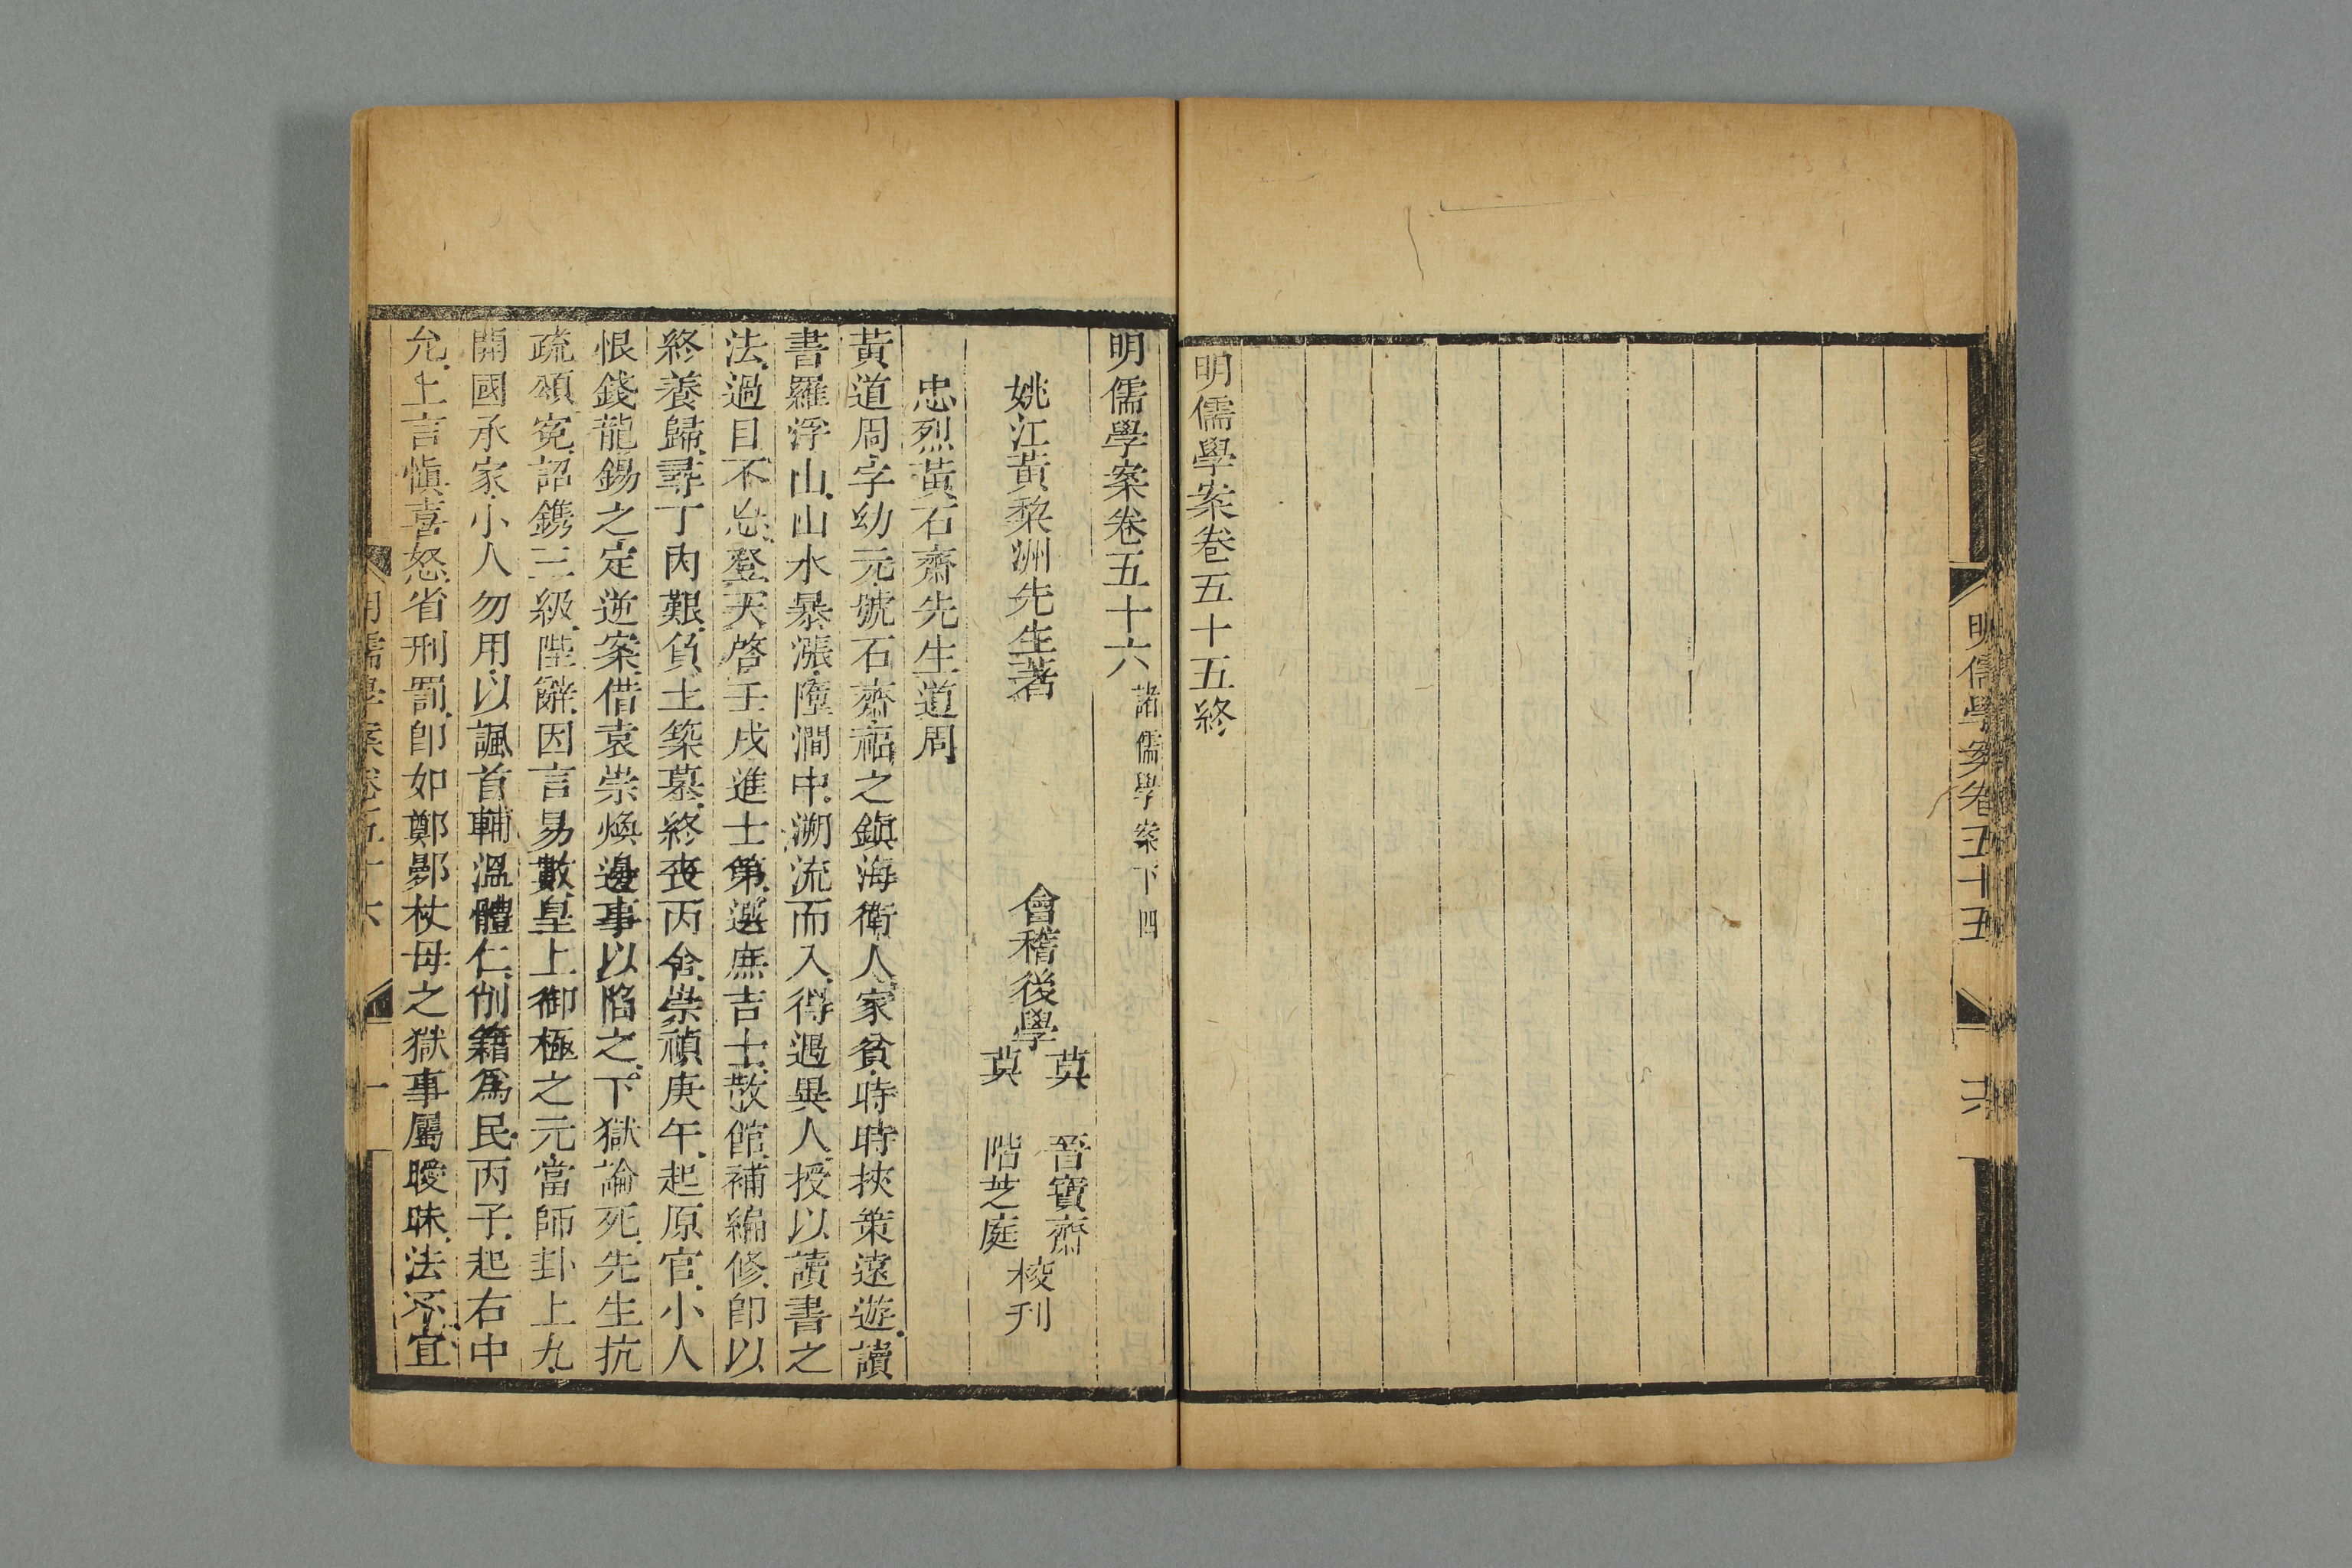 明儒學案卷五十五
明儒學案卷五十五終
明儒學案卷五十六 諸儒學案下四
姚江黃棃洲先生著
會稽後學
莫 晉寶齋
莫 階芝庭
梭刊
忠烈黃石齋先生道周
黃道周字幼元號石齋福之鎭海衛人家貧時時挾策遠遊讀
書羅浮山山水暴漲墮澗中溯流而入得遇異人授以讀書之
法過目不忘登天啓壬戌進士第選庶吉士散館補編修卽以
終養歸尋丁內艱負土築墓終喪丙舍崇禎庚午起原官小人
恨錢龍錫之定逆案借袁崇煥邊事以陷之下獄論死先生抗
疏頌寃詔鐫三級陛辭因言易數皇上御極之元當師卦上九
開國承家小人勿用以諷首輔溫體仁削籍爲民丙子起右中
允上言愼喜怒省刑罰卽如鄭鄤杖母之獄事屬曖昧法不宜
明儒學案卷五十六
一